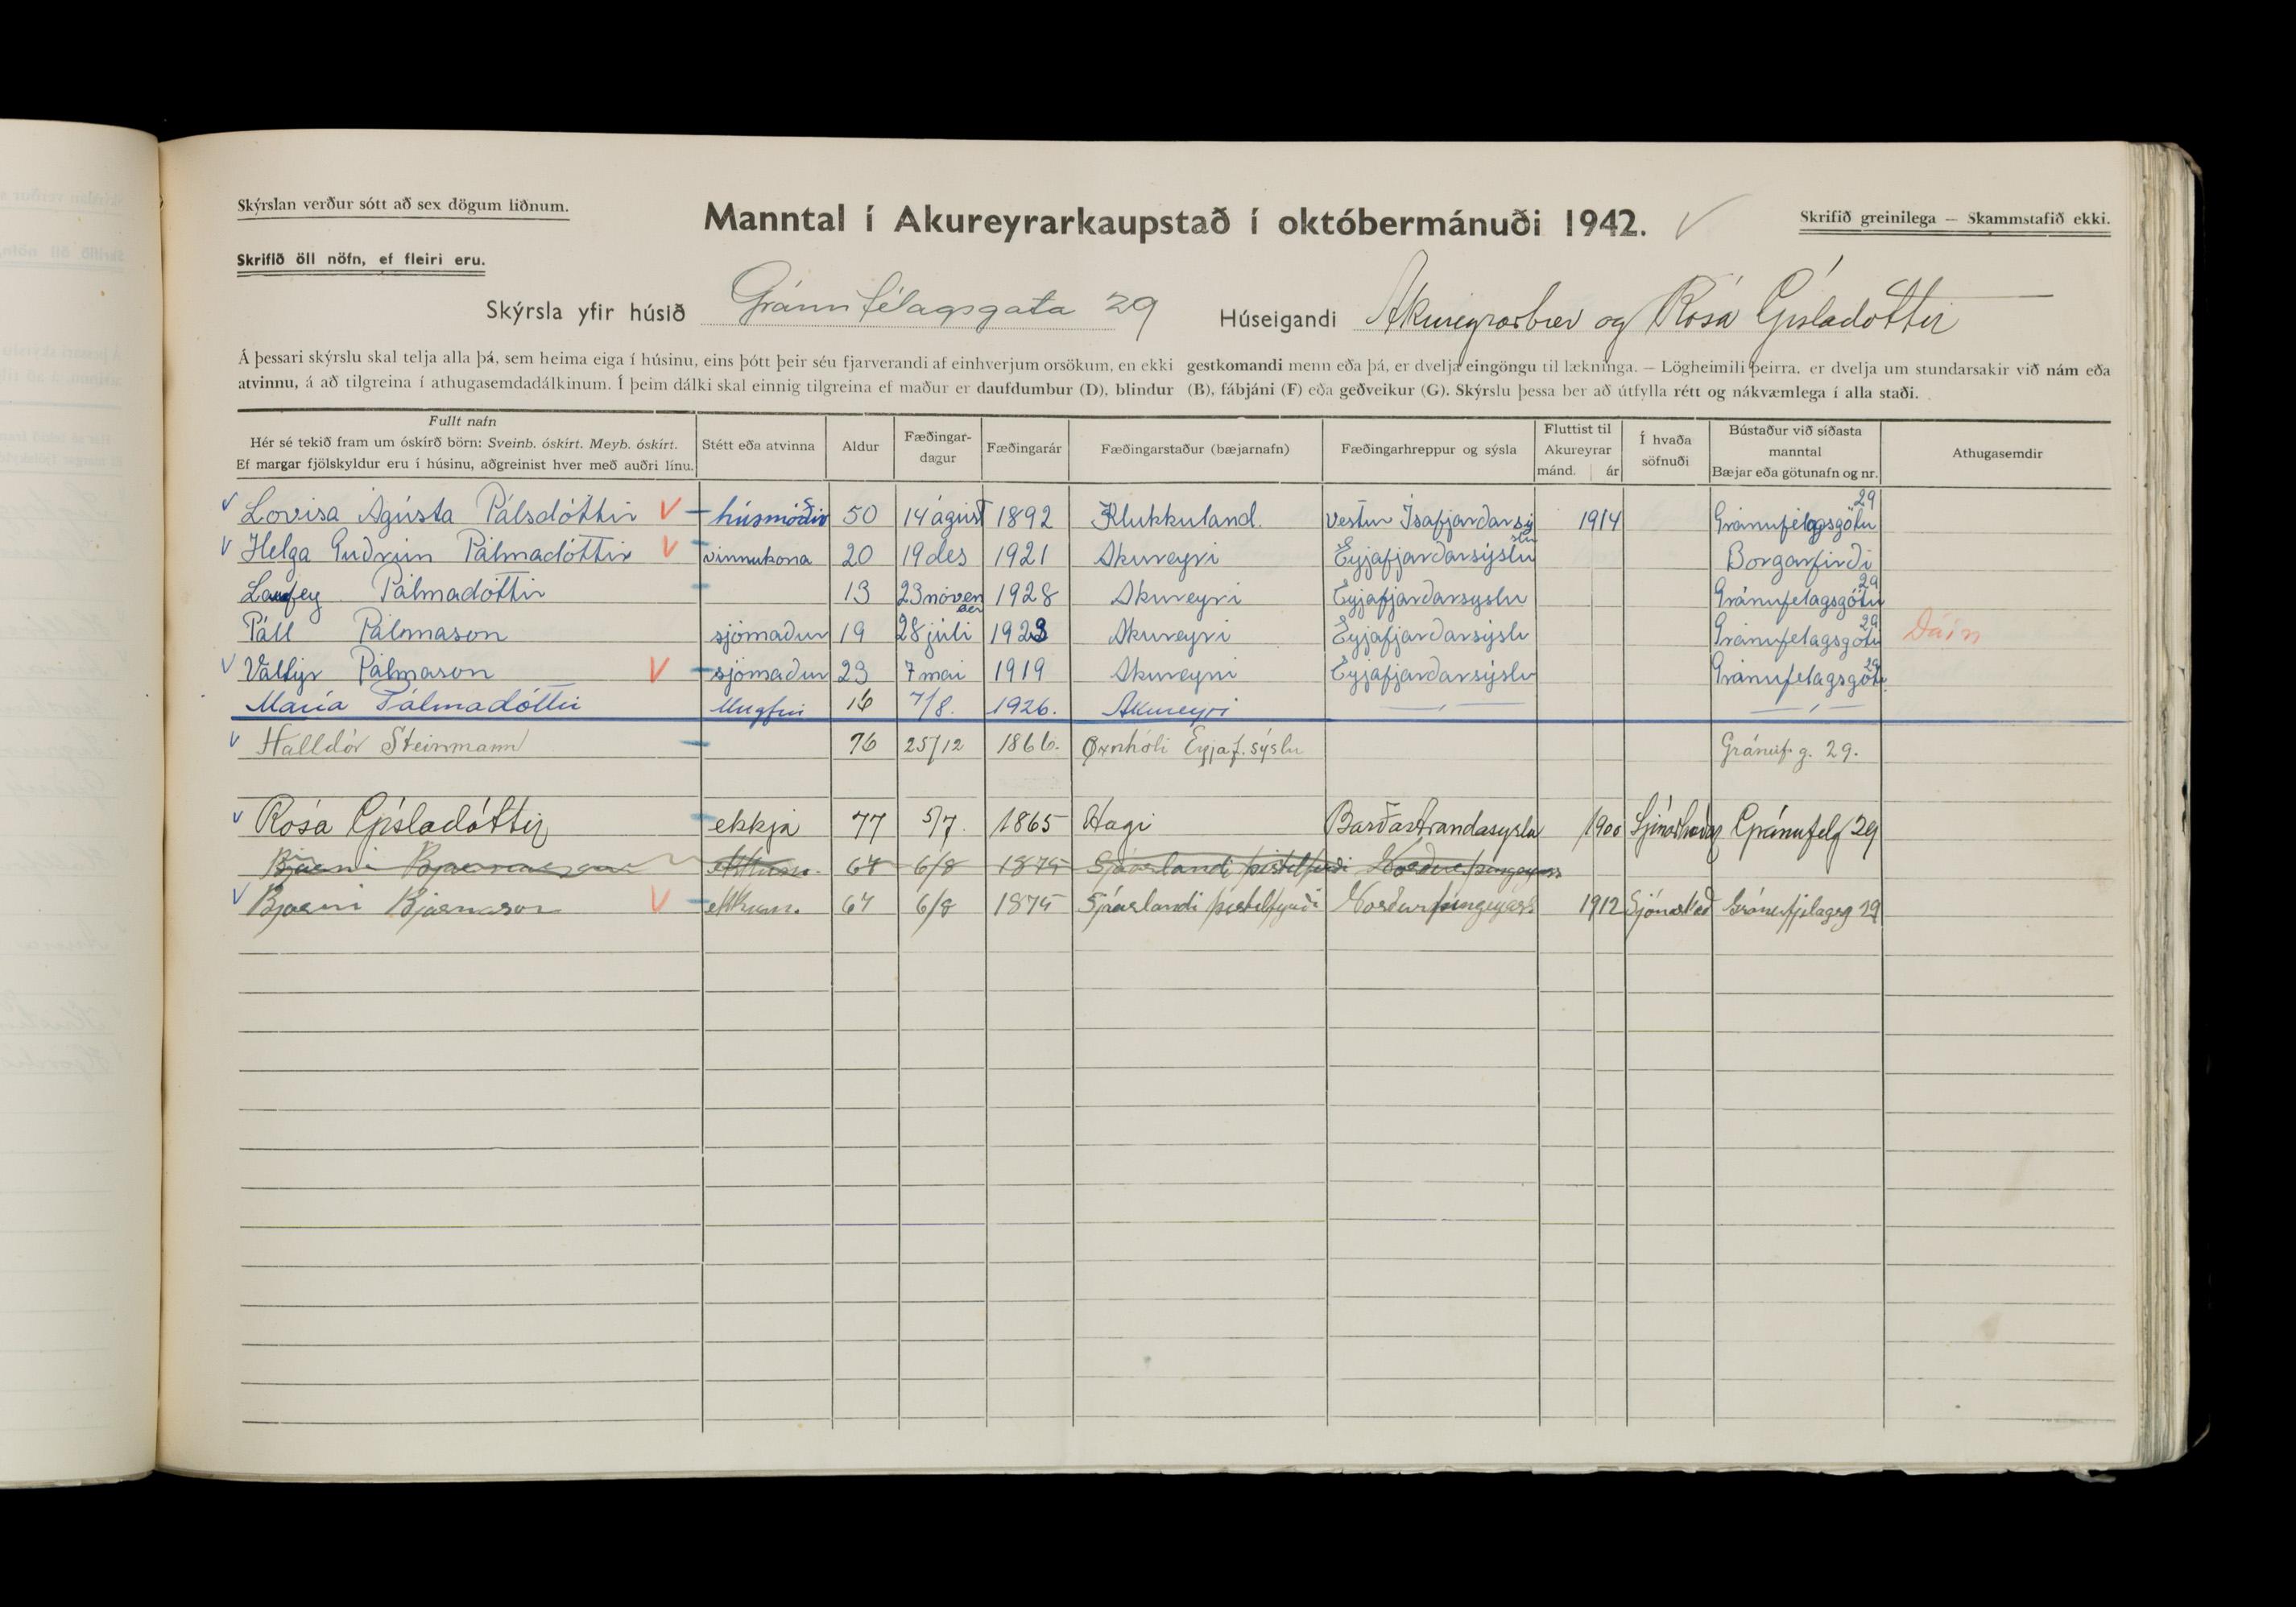 Skýrslan verður sótt að sex dögum liðnum.
Manntal í Akureyrarkaupstað í októbermánuði 1942. V
Skrifið greinilega — Skammstafið ekki.
Skrifið öll nöfn, ef fleiri eru.
Skýrsla yfir húsið Gránufélagsgata 29 Húseigandi Akureyrarbær og Rósa Gísladóttir
Á þessari skýrslu skal telja alla þá, sem heima eiga í húsinu, eins þótt þeir séu fjarverandi af einhverjum orsökum, en ekki gestkomandi menn eða þá, er dvelja eingöngu til lækninga. — Lögheimili þeirra, er dvelja um stundarsakir við nám eða
atvinnu, á að tilgreina í athugasemdadálkinum. Í þeim dálki skal einnig tilgreina ef maður er daufdumbur (D), blindur (B), fábjáni (F) eða geðveikur (G). Skýrslu þessa ber að útfylla rétt og nákvæmlega í alla staði.
Fullt nafn
Hér sé tekið fram um óskírð börn: Sveinb. óskírt. Meyb. óskírt.
Ef margar fjölskyldur eru í húsinu, aðgreinist hver með auðri línu.
Stétt eða atvinna
Aldur
Fæðingar-
dagur
Fæðingarár
Fæðingarstaður (bæjarnafn)
Fæðingarhreppur og sýsla
Fluttist til
Akureyrar
mánd. ár
Í hvaða
söfnuði
Bústaður við síðasta
manntal
Bæjar eða götunafn og nr.
Athugasemdir
V Lovísa Ágústa Pálsdóttir V húsmóðir 50 14 ágúst 1892 Klukkuland. Vestur Ísafjarðarsýslu 1914 Gránufélagsgötu 29
V Helga Guðrún Pálmadóttir V vinnukona 20 19 des 1921 Akureyri Eyjafjarðarsýslu Borgarfirði
Laufey Pálmadóttir 13 23 nóvember 1928 Akureyri Eyjafjarðarsyslu Gránufelagsgötu 29
Páll Pálmason sjómaður 19 28 júli 1923 Akureyri Eyjafjarðarsýslu Gránufelagsgötu 29 Dáin
V Valtýr Pálmason V sjómaður 23 7 mai 1919 Akureyri Eyjafjarðarsýslu Gránufelagsgötu 29
María Pálmadóttir 16 7/8. 1926. Akureyri — , — — , —
V Halldór Steinmann 76 25/12 1866. Øxnhóli Eyjaf. sýslu Gránuf. g. 29.
V Rósa Gísladóttir ekkja 77 5/7. 1865 Hagi Barðastrandasyslu 1900 Gránufelg 29
Bjarni Bjarnason 67 6/8 1875
V Bjarni Bjarnason V 67 6/8 1875 Þistelfyrði Norðurþingeyars 1912 Gránufjelagsg 29